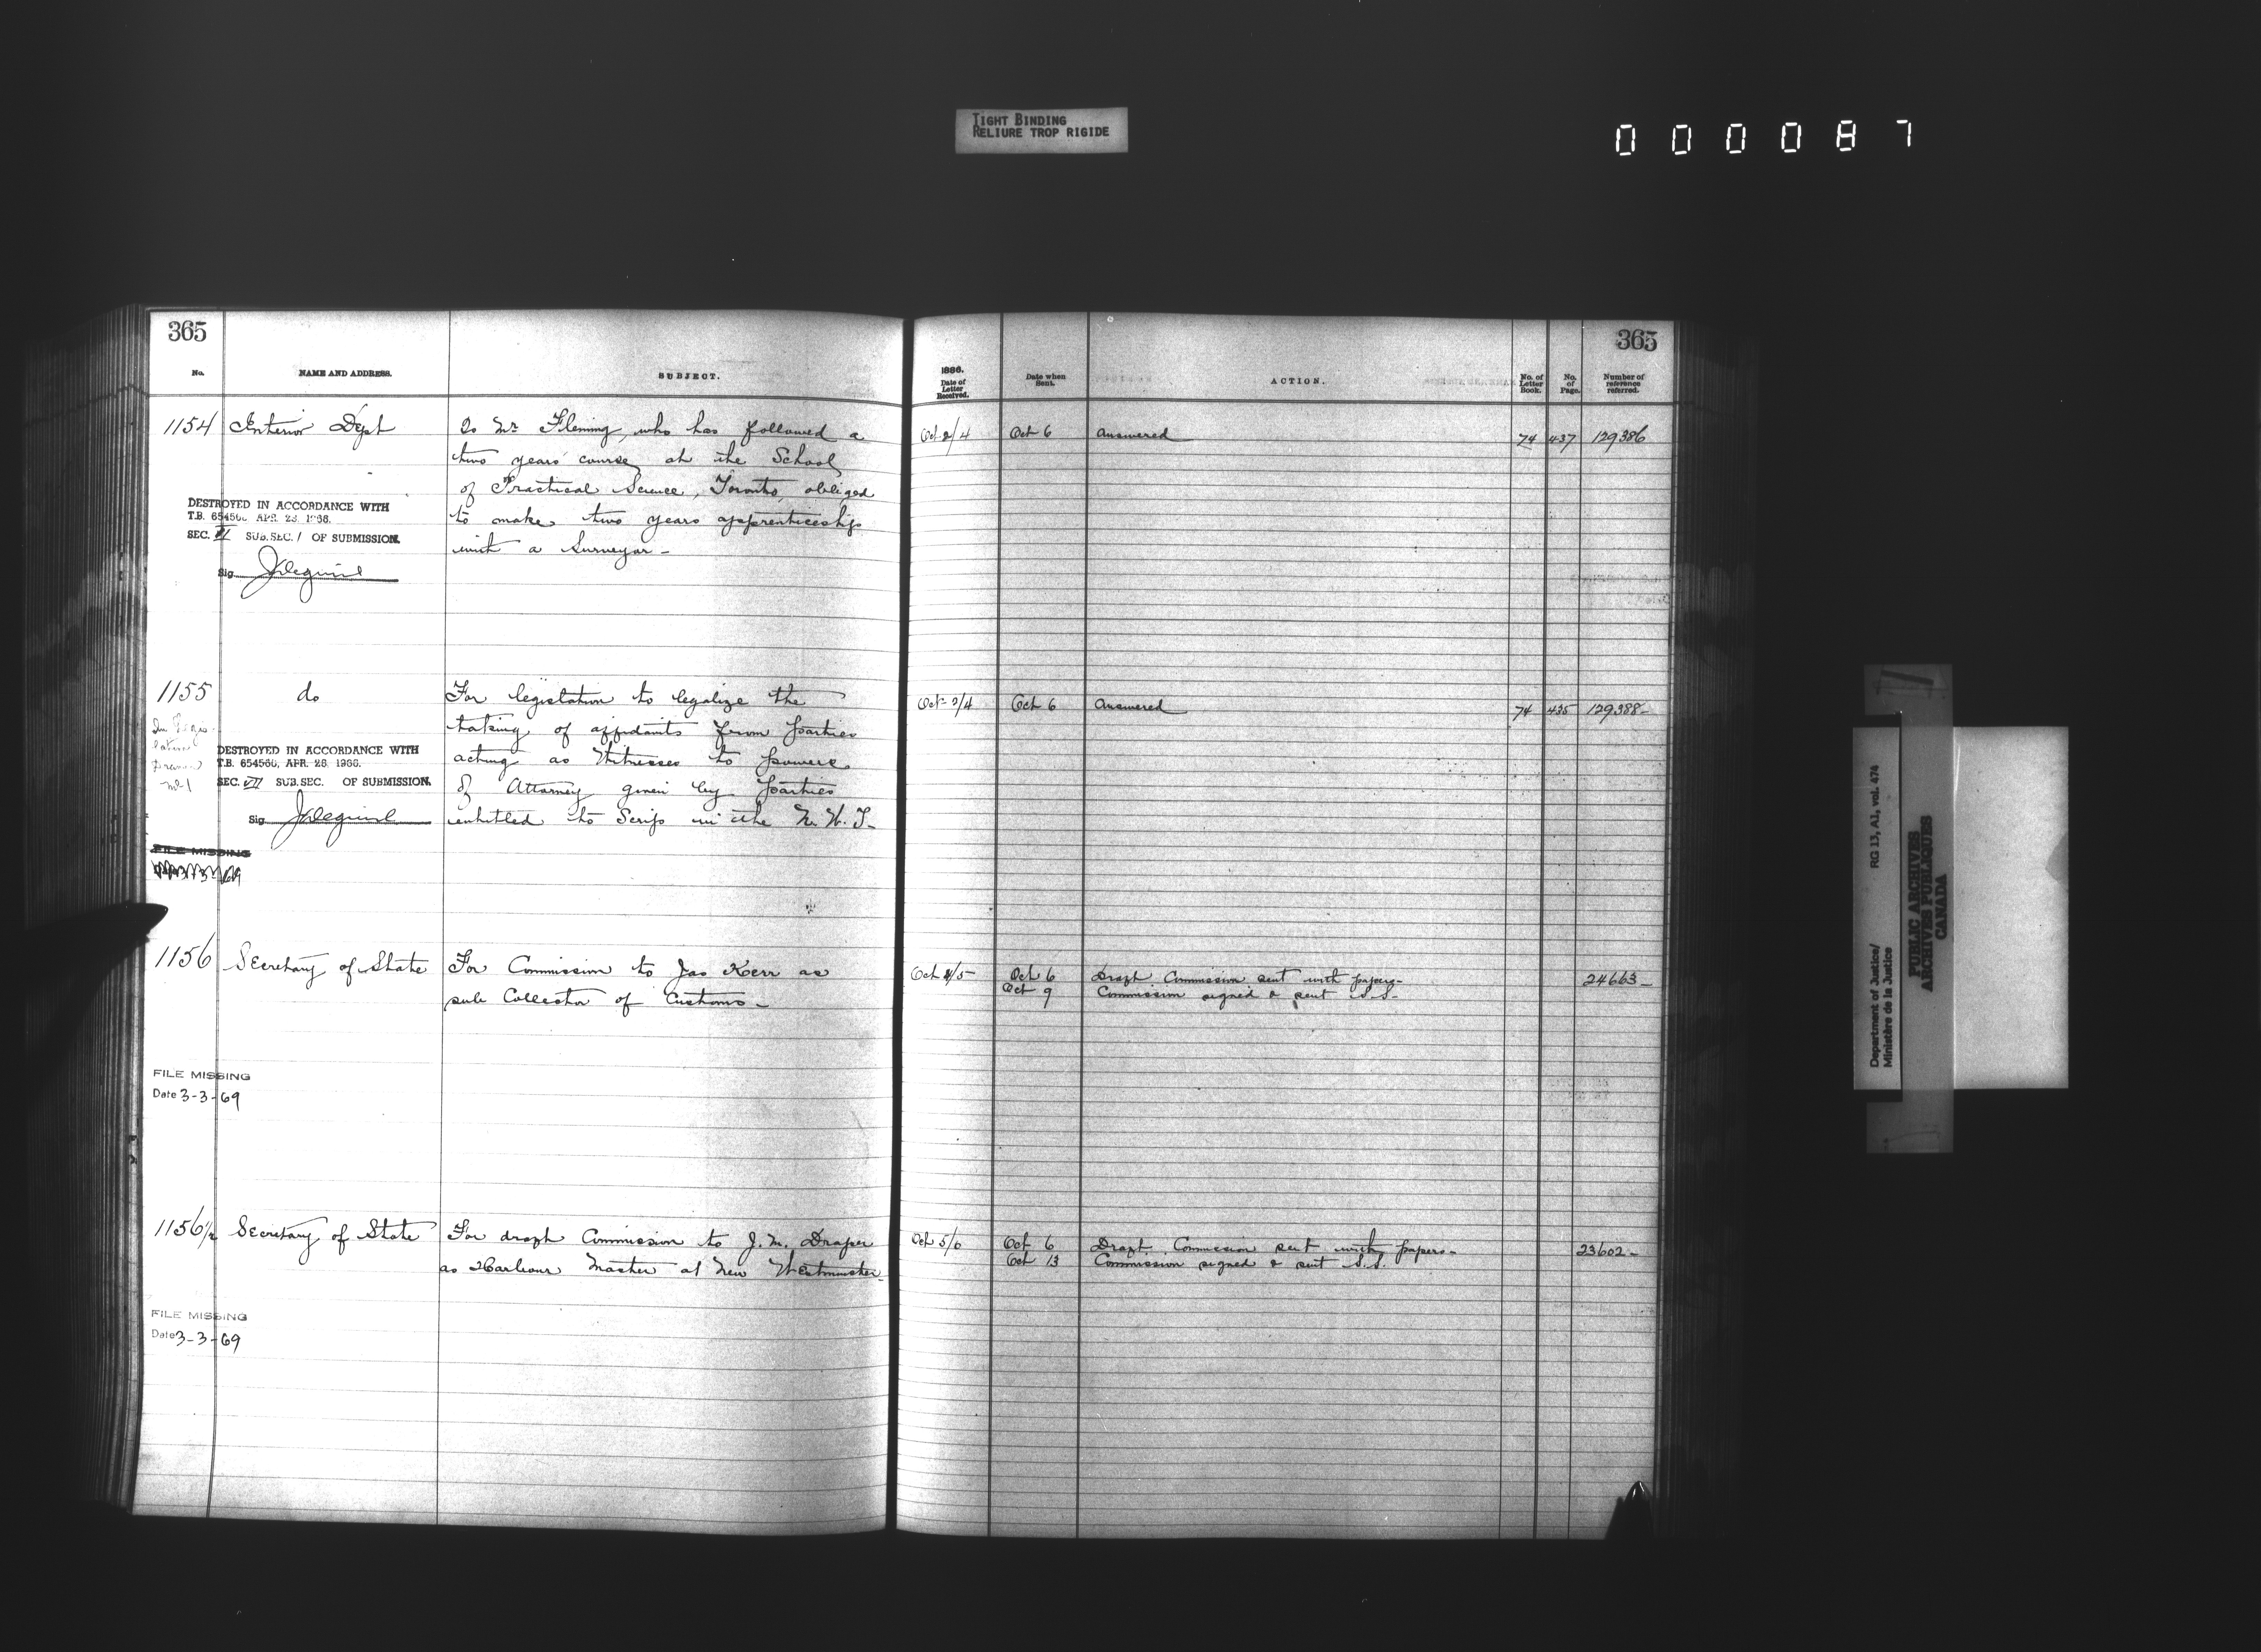 TIGHT BINDING
RELIURE TROP RIGIDE
000087
365
No.
NAME AND ADDRESS.
SUBJECT.
1154
Interior Dept
Is Mr Fleming, who has followed a
two years' course at the School
of Practical Science, Toronto, obliged
to make two years apprenticeship
with a Surveyor-
DESTROYED IN ACCORDANCE WITH
T.B. 654560, APR. 28, 1966.
SEC. VI SUB.SEC. 1 OF SUBMISSION.
Sig.
1155
do
For legislation to legalize the
taking of affidavits from parties
acting as Witnesses to powers
of Attorney given by parties
entitled to Scrip in the N.W.T-
DESTROYED IN ACCORDANCE WITH
T.B. 654560, APR. 28, 1966.
SEC. VII SUB.SEC. OF SUBMISSION.
Sig.
FILE MISSING
1156
Secretary of State
For Commission to Jas Kerr as
sub Collector of Customs-
FILE MISSING
Date 3-3-69
1156 1/2
Secretary of State
For draft Commission to J.M. Draper
as Harbour Master at New Westminster
FILE MISSING
Date 3-3-69
365
1886.
Date of
Letter
Received.
Date when
Sent.
ACTION.
No. of
Letter
Book.
No.
of
Page.
Number of
reference
referred.
Oct 2/4
Oct 6
Answered
74
437
129386
Oct 2/4
Oct 6
Answered
74
435
129388-
Oct 4/5
Oct 6
Draft Commission sent with papers-
24663-
Oct 9
Commission signed & sent S.S.-
Oct 5/6
Oct 6
Draft Commission sent with papers-
23602-
Oct 13
Commission signed & sent S.S.
Department of Justice/ RG 13, A1, vol. 474
Ministère de la Justice
PUBLIC ARCHIVES
ARCHIVES PUBLIQUES
CANADA